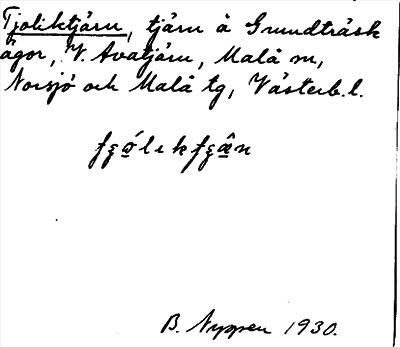 Tjoliktjärn, tjärn å Grundträsk
ägor, V. Avatjärn, Malå sn,
Norsjö och Malå tg, Västerb. l.
B. Nyppen 1930.